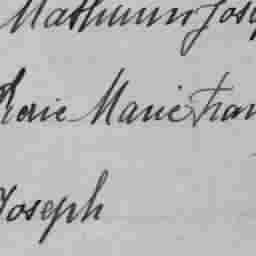 Mathurin Jose
Marie Fran
Joseph